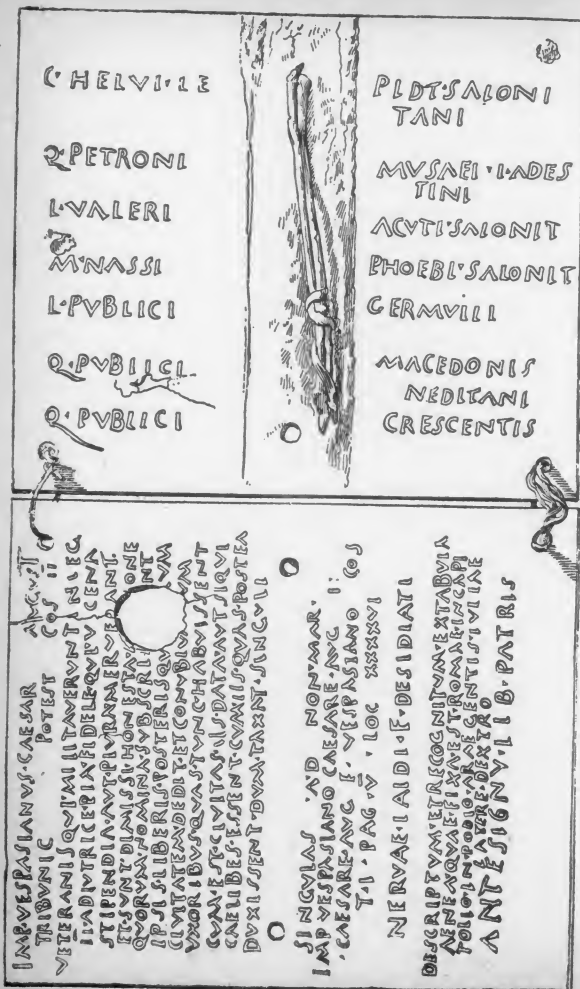 C·HELVI·LE PIDT·SALONI
TANI
Q·PETRONI MVSAEI·IADES
TINI
L·VALERI ACVTI·SALONIT
M·NASSI PHOEBI·SALONIT
L·PVBLICI GERMVILI
Q·PVBLICI MACEDONIS
NEDITANI
Q·PVBLICI CRESCENTIS
IMP·VESPASIANVS·CAESAR AVGVST
TRIBVNIC POTEST COS II
VETERANIS·QVI·MILITAVERVNT·IN·LEG
II·ADIVTRICE·PIA·FIDELE·QVI·VICENA
STIPENDIA·AVT·PLVRA·MERVERANT·
ET·SVNT·DIMISSI·HONESTA ONE
QVORVM·NOMINA·SVBSCRI NT
IPSIS·LIBERIS·POSTERISQ VM
CIVITATEM·DEDIT·ET·CONVBIV M
VXORIBVS·QVAS·TVNC·HABVISSENT
CVM·EST·CIVITAS·IIS·DATA·AVT·SIQVI
CAELIBES·ESSENT·CVM·IIS·QVAS·POSTEA
DVXISSENT·DVM·TAXAT·SINGVLI
SINGVLAS ·A·D NON·MAR·
IMP·VESPASIANO·CAESARE·AVG II
·CAESARE·AVG F· VESPASIANO COS
T·I·PAG·V·LOC XXXXVI
NERVAE·LAIDI·F·DESIDIATI
DESCRIPTVM·ET·RECOGNITVM·EX·TABVLA
AENEA·QVAE·FIXA·EST·ROMAE·IN·CAPI
TOLIO·IN·PODIO·ARAE·GENTIS·IVLIAE
LATERE·DEXTRO
ANTE·SIGNV·LIB·PATRIS